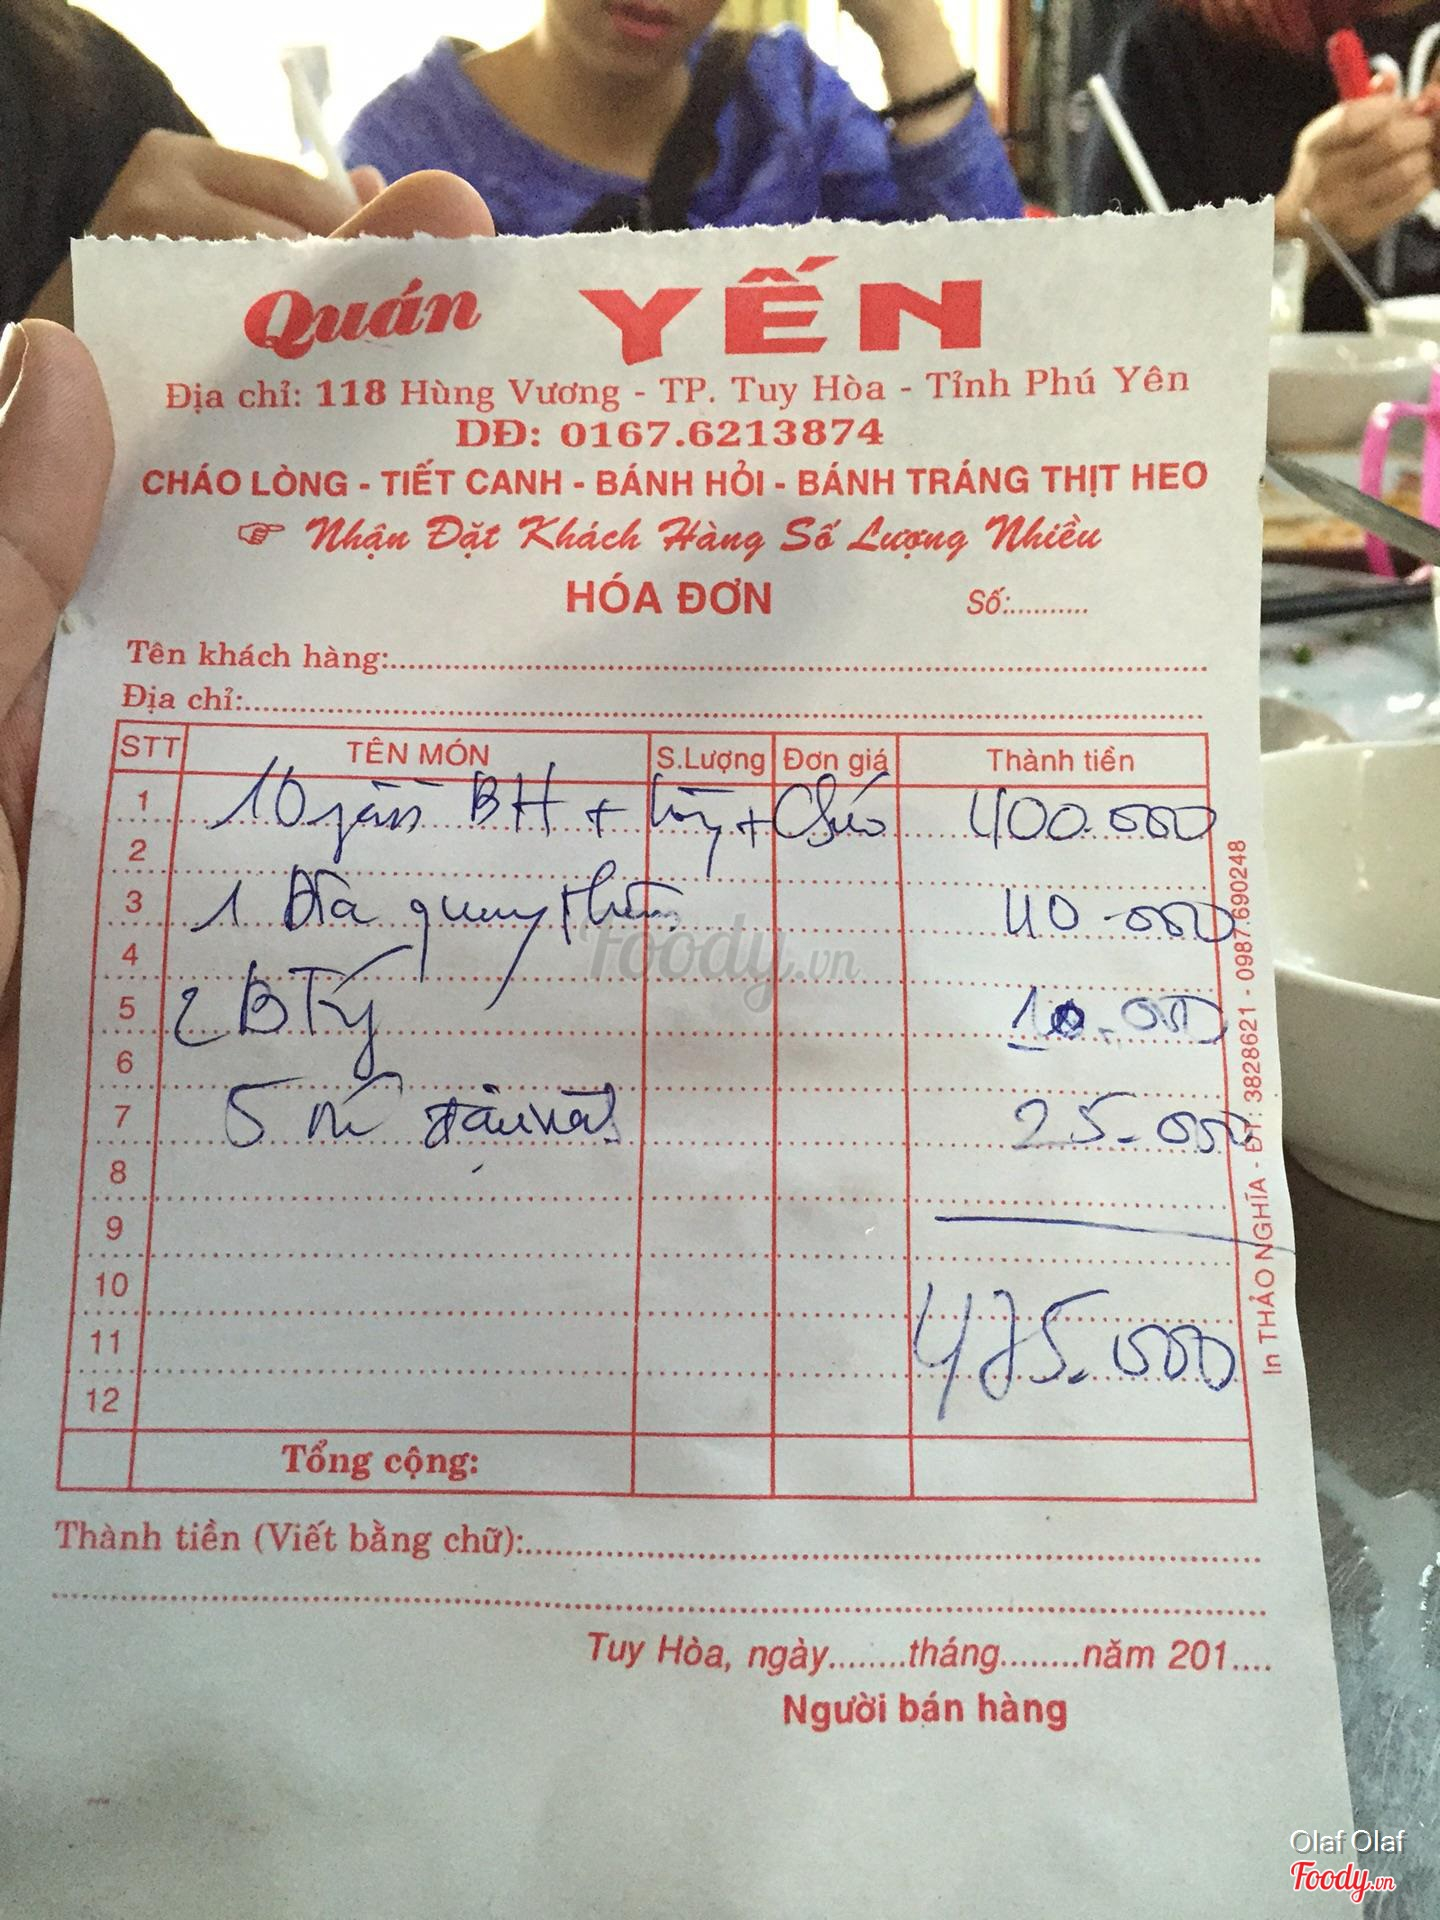 Quán YẾN
Địa chỉ: 118 Hùng Vương - TP. Tuy Hòa - Tỉnh Phú Yên
DĐ: 0167.6213874
CHÁO LÒNG - TIẾT CANH - BÁNH HỎI - BÁNH TRÁNG THỊT HEO
Nhận Đặt Khách Hàng Số Lượng Nhiều
HÓA ĐƠN Số:..........
Tên khách hàng:
Địa chỉ:
STT TÊN MÓN S.Lượng Đơn giá Thành tiền
1 10 BH + + Cháo 400.000
2
3 1 Đĩa 40.000
4
5 2 B 10.000
6
7 5 đậu 25.000
8
9
10
11 475.000
12
Tổng cộng:
Thành tiền (Viết bằng chữ):
Tuy Hòa, ngày........tháng........năm 201....
Người bán hàng
In THẢO NGHĨA - ĐT: 3828621 - 0987.690248
Foody.vn
Olaf Olaf
Foody.vn